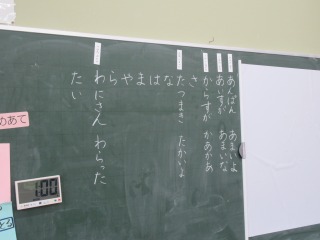 あんぱん あまいよ
あいすが あまいな
からすが かあかあ
さ
たつまき たかいよ
な
は
ま
や
ら
わにさん わらった
たい
のあて
1:00